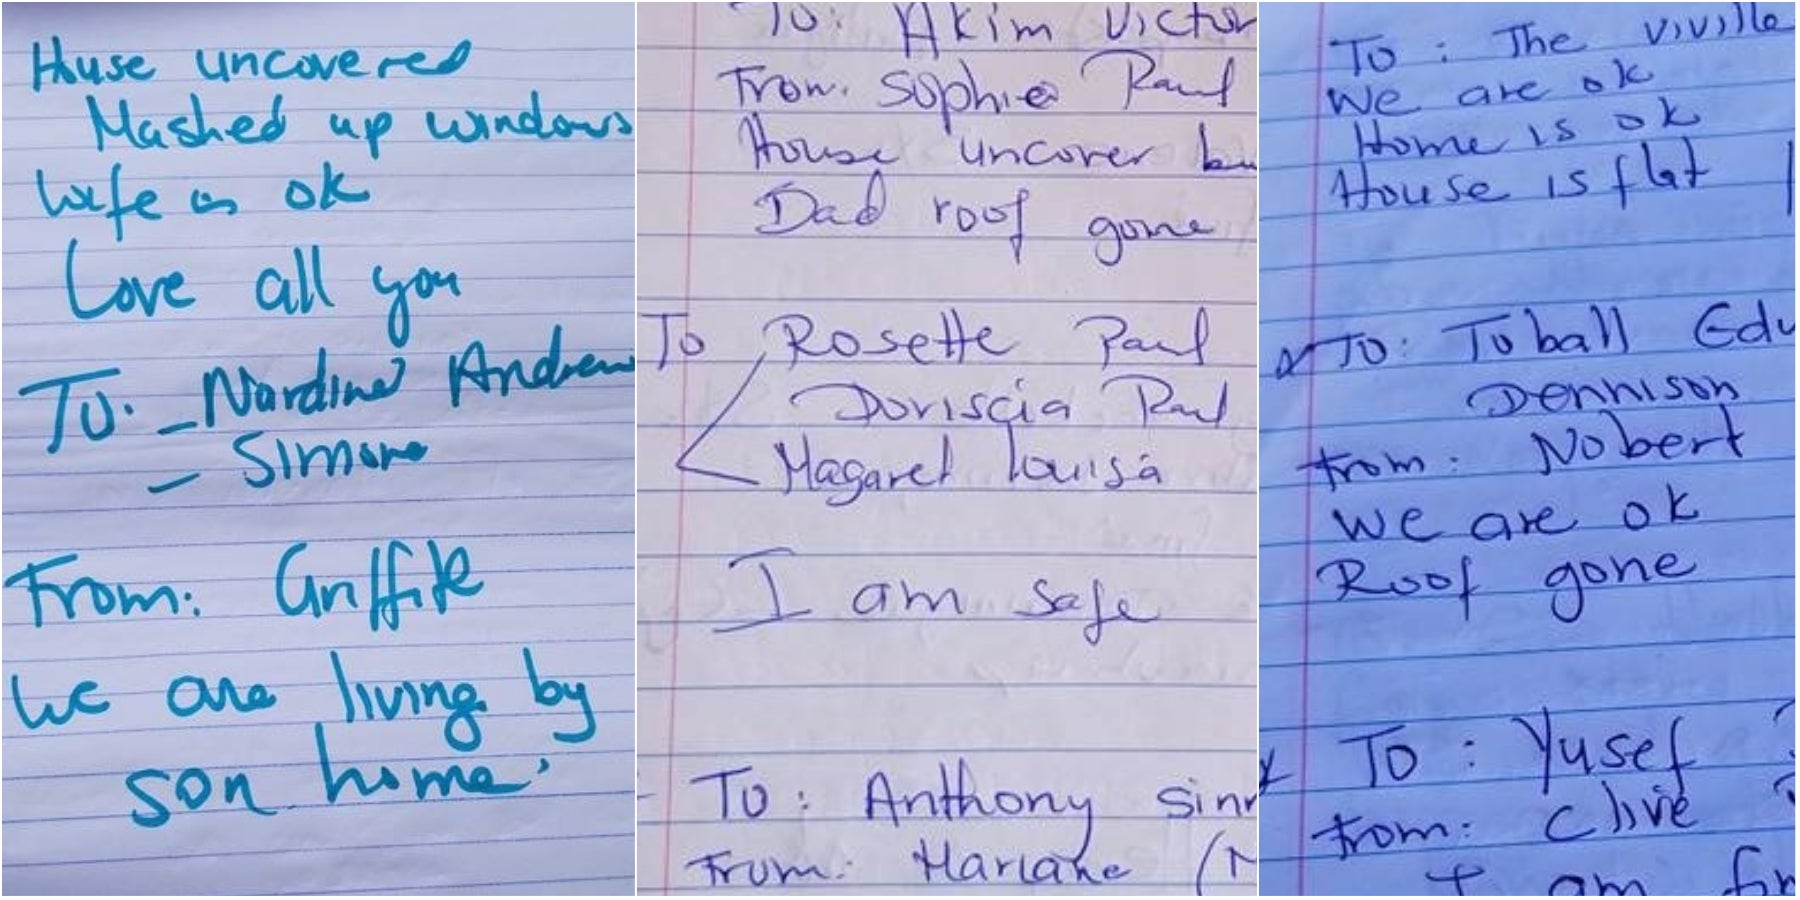 House uncovered
Mashed up windows
Wife is ok
Love all you
To: - Nardine Andrew
- Simone
From: Griffik
We are living by
son home.
To: Akim Victor
From: Sophie Paul
House uncover
Dad roof gone
To Rosette Paul
Doriscia Paul
Magaret Louisa
I am safe
To: Anthony
From: Mariane
To: The Viville
We are ok
Home is ok
House is flat
To: Toball Edu
Dennison
From: Nobert
We are ok
Roof gone
To: Yusef
From: Clive
I am